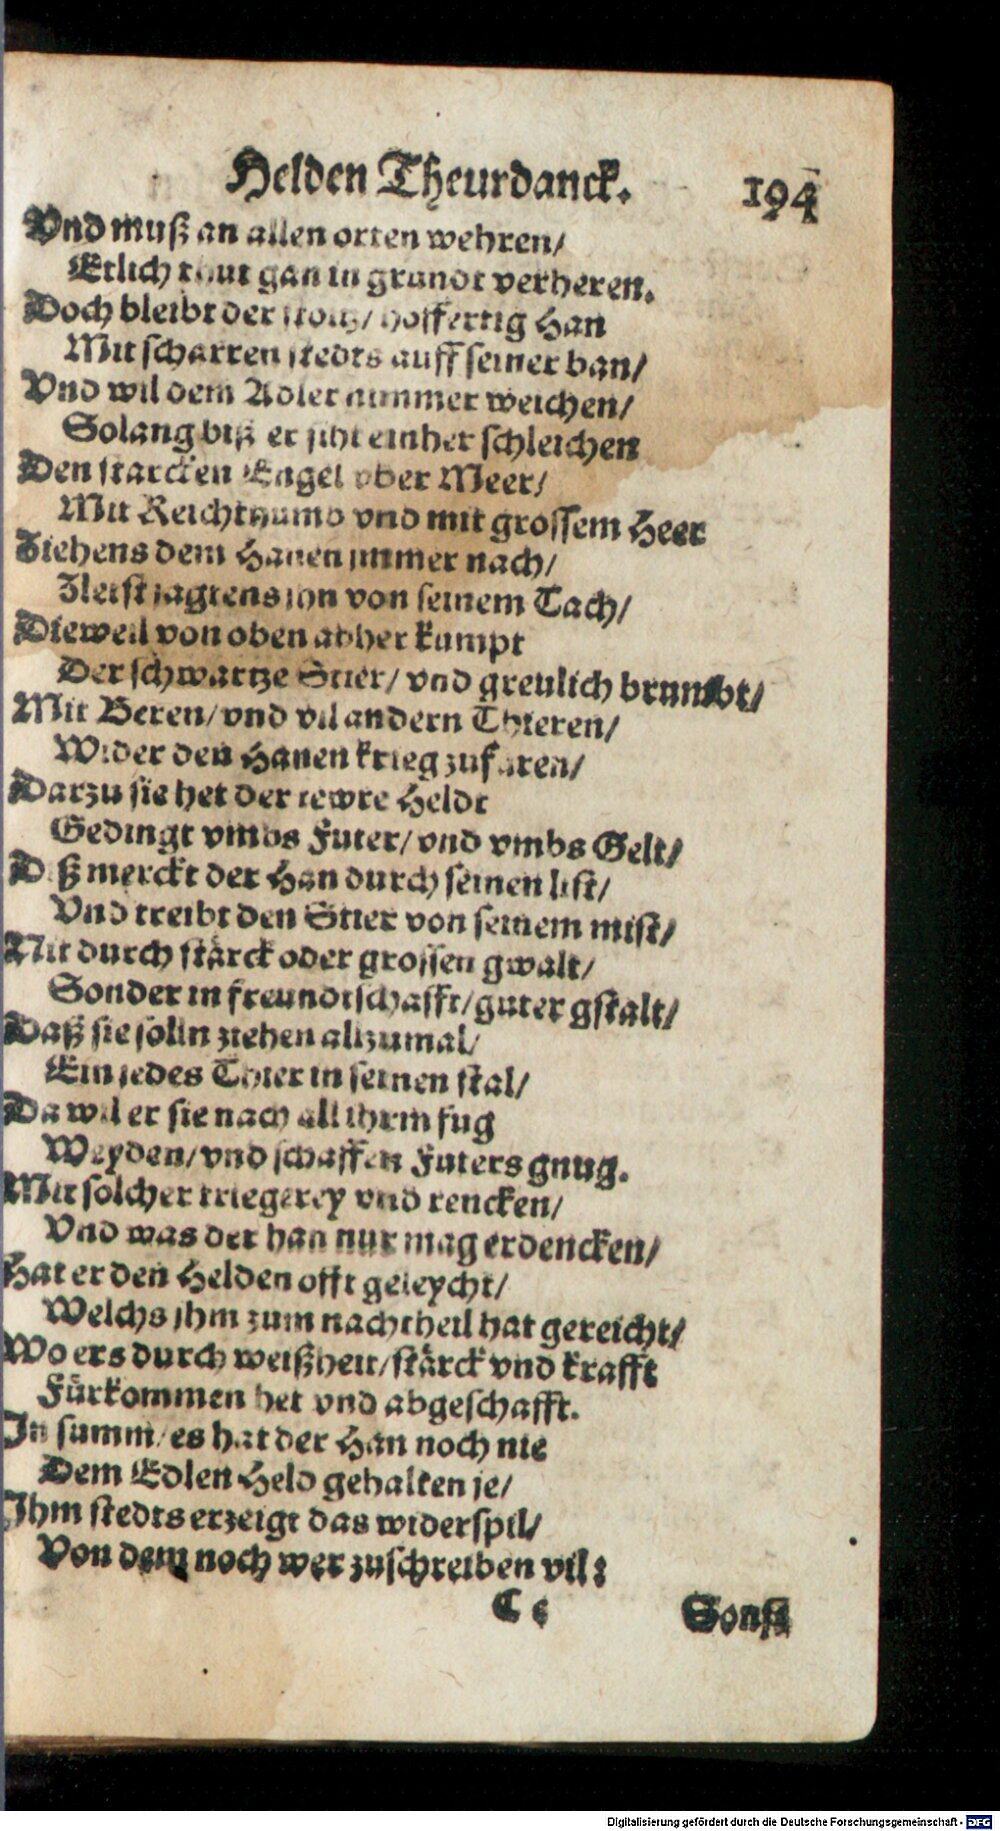 Helden Theurdanck. 194
Vnd muß an allen orten wehren/
Etlich thut gan in grundt verheren.
Doch bleibt der stoltz/ hoffertig Han
Mit scharren stedts auff seiner ban/
Vnd wil dem Adler nimmer weichen/
Solang biß er siht einher schleichen
Den starcken Engel vber Meer/
Mit Reichthumb vnd mit grossem Heer
Ziehens dem Hanen immer nach/
Zletst jagtens jhn von seinem Tach/
Dieweil von oben abher kumpt
Der schwartze Stier/ vnd greulich brumbt/
Mit Beren/ vnd vil andern Thieren/
Wider den Hanen krieg zufüren/
Darzu sie het der tewre Heldt
Gedingt vmbs Futer/ vnd vmbs Gelt/
Diß merckt der Han durch seinen list/
Vnd treibt den Stier von seinem mist/
Nit durch stärck oder grossen gwalt/
Sonder in freundtschafft/ guter gstalt/
Daß sie solln ziehen allzumal/
Ein jedes Thier in seinen stal/
Da wil er sie nach all ihrm fug
Weyden/ vnd schaffen Futers gnug.
Mit solcher triegerey vnd rencken/
Vnd was der han nur mag erdencken/
Hat er den Helden offt geleycht/
Welchs jhm zum nachtheil hat gereicht/
Wo ers durch weißheit/ stärck vnd krafft
Fürkommen het vnd abgeschafft.
In summ/ es hat der Han noch nie
Dem Edlen Held gehalten je/
Ihm stedts erzeigt das widerspil/
Von dem noch wer zuschreiben vil:
C c Sonst
Digitalisierung gefördert durch die Deutsche Forschungsgemeinschaft - DFG